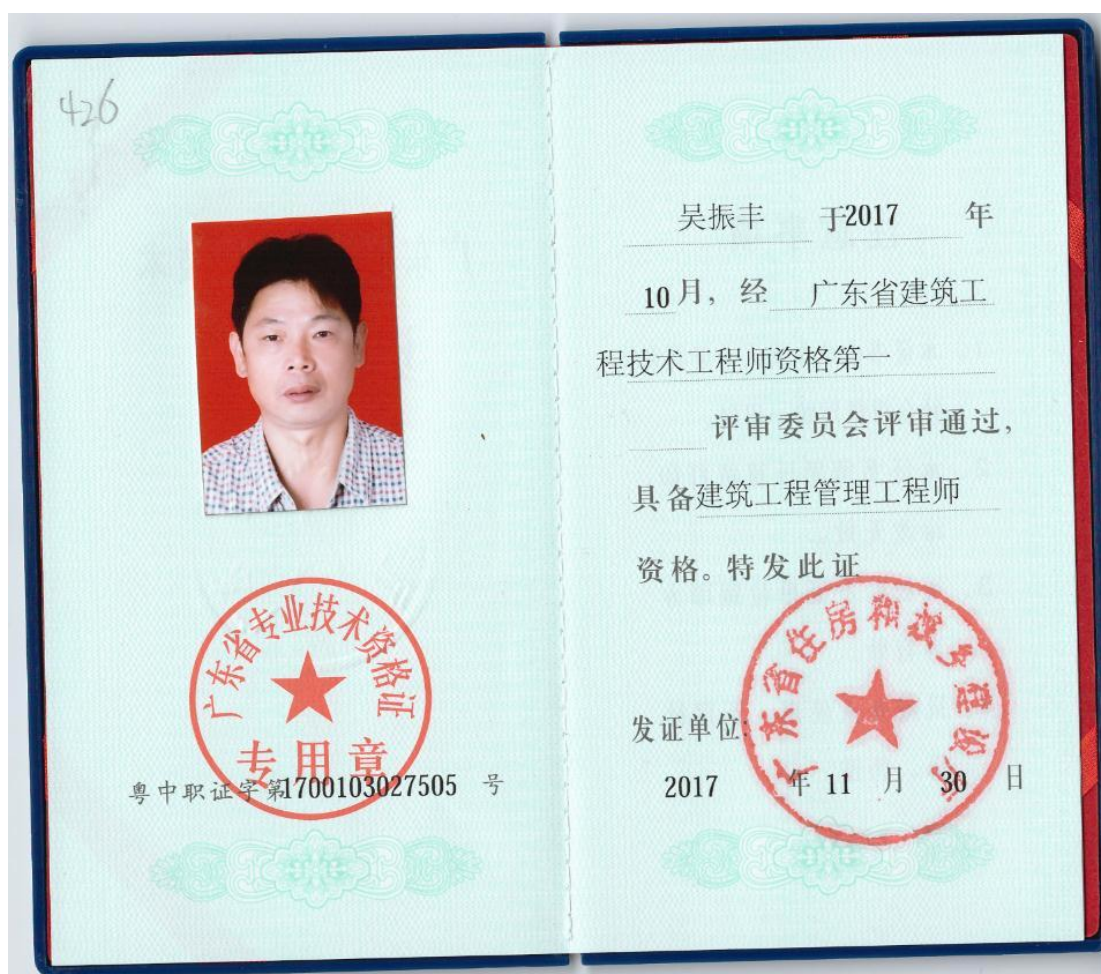 426
广东省专业技术资格证
专用章
粤中职证字第1700103027505 号
吴振丰 于2017 年
10月，经 广东省建筑工
程技术工程师资格第一
评审委员会评审通过，
具备建筑工程管理工程师
资格。特发此证
广东省住房和城乡建设厅
发证单位:
2017 年 11 月 30 日